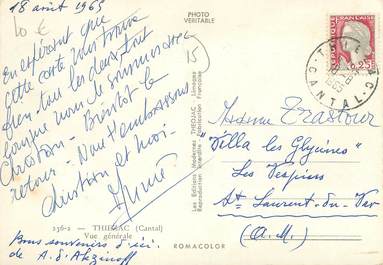 18 août 1965
10 €
15
PHOTO
VERITABLE
En espérant que
cette carte vous trouve
bien tous les deux, tout
comme nous le sommes avec
Christian - Bientôt le
retour - Nous t'embrassons
Christian et moi-
236-2 - THIEZAC (Cantal)
Vue générale
Bons souvenirs d'ici.
de A. d'
Les Editions Modernes "THEOJAC", Limoges
Reproduction Interdite - Fabrication Française
ROMACOLOR
REPUBLIQUE
FRANÇAISE
0,25F
CANTAL
Madame Trastour
"Villa les Glycines"
Les Vespins
St. Laurent-du-Var
(A.M.)